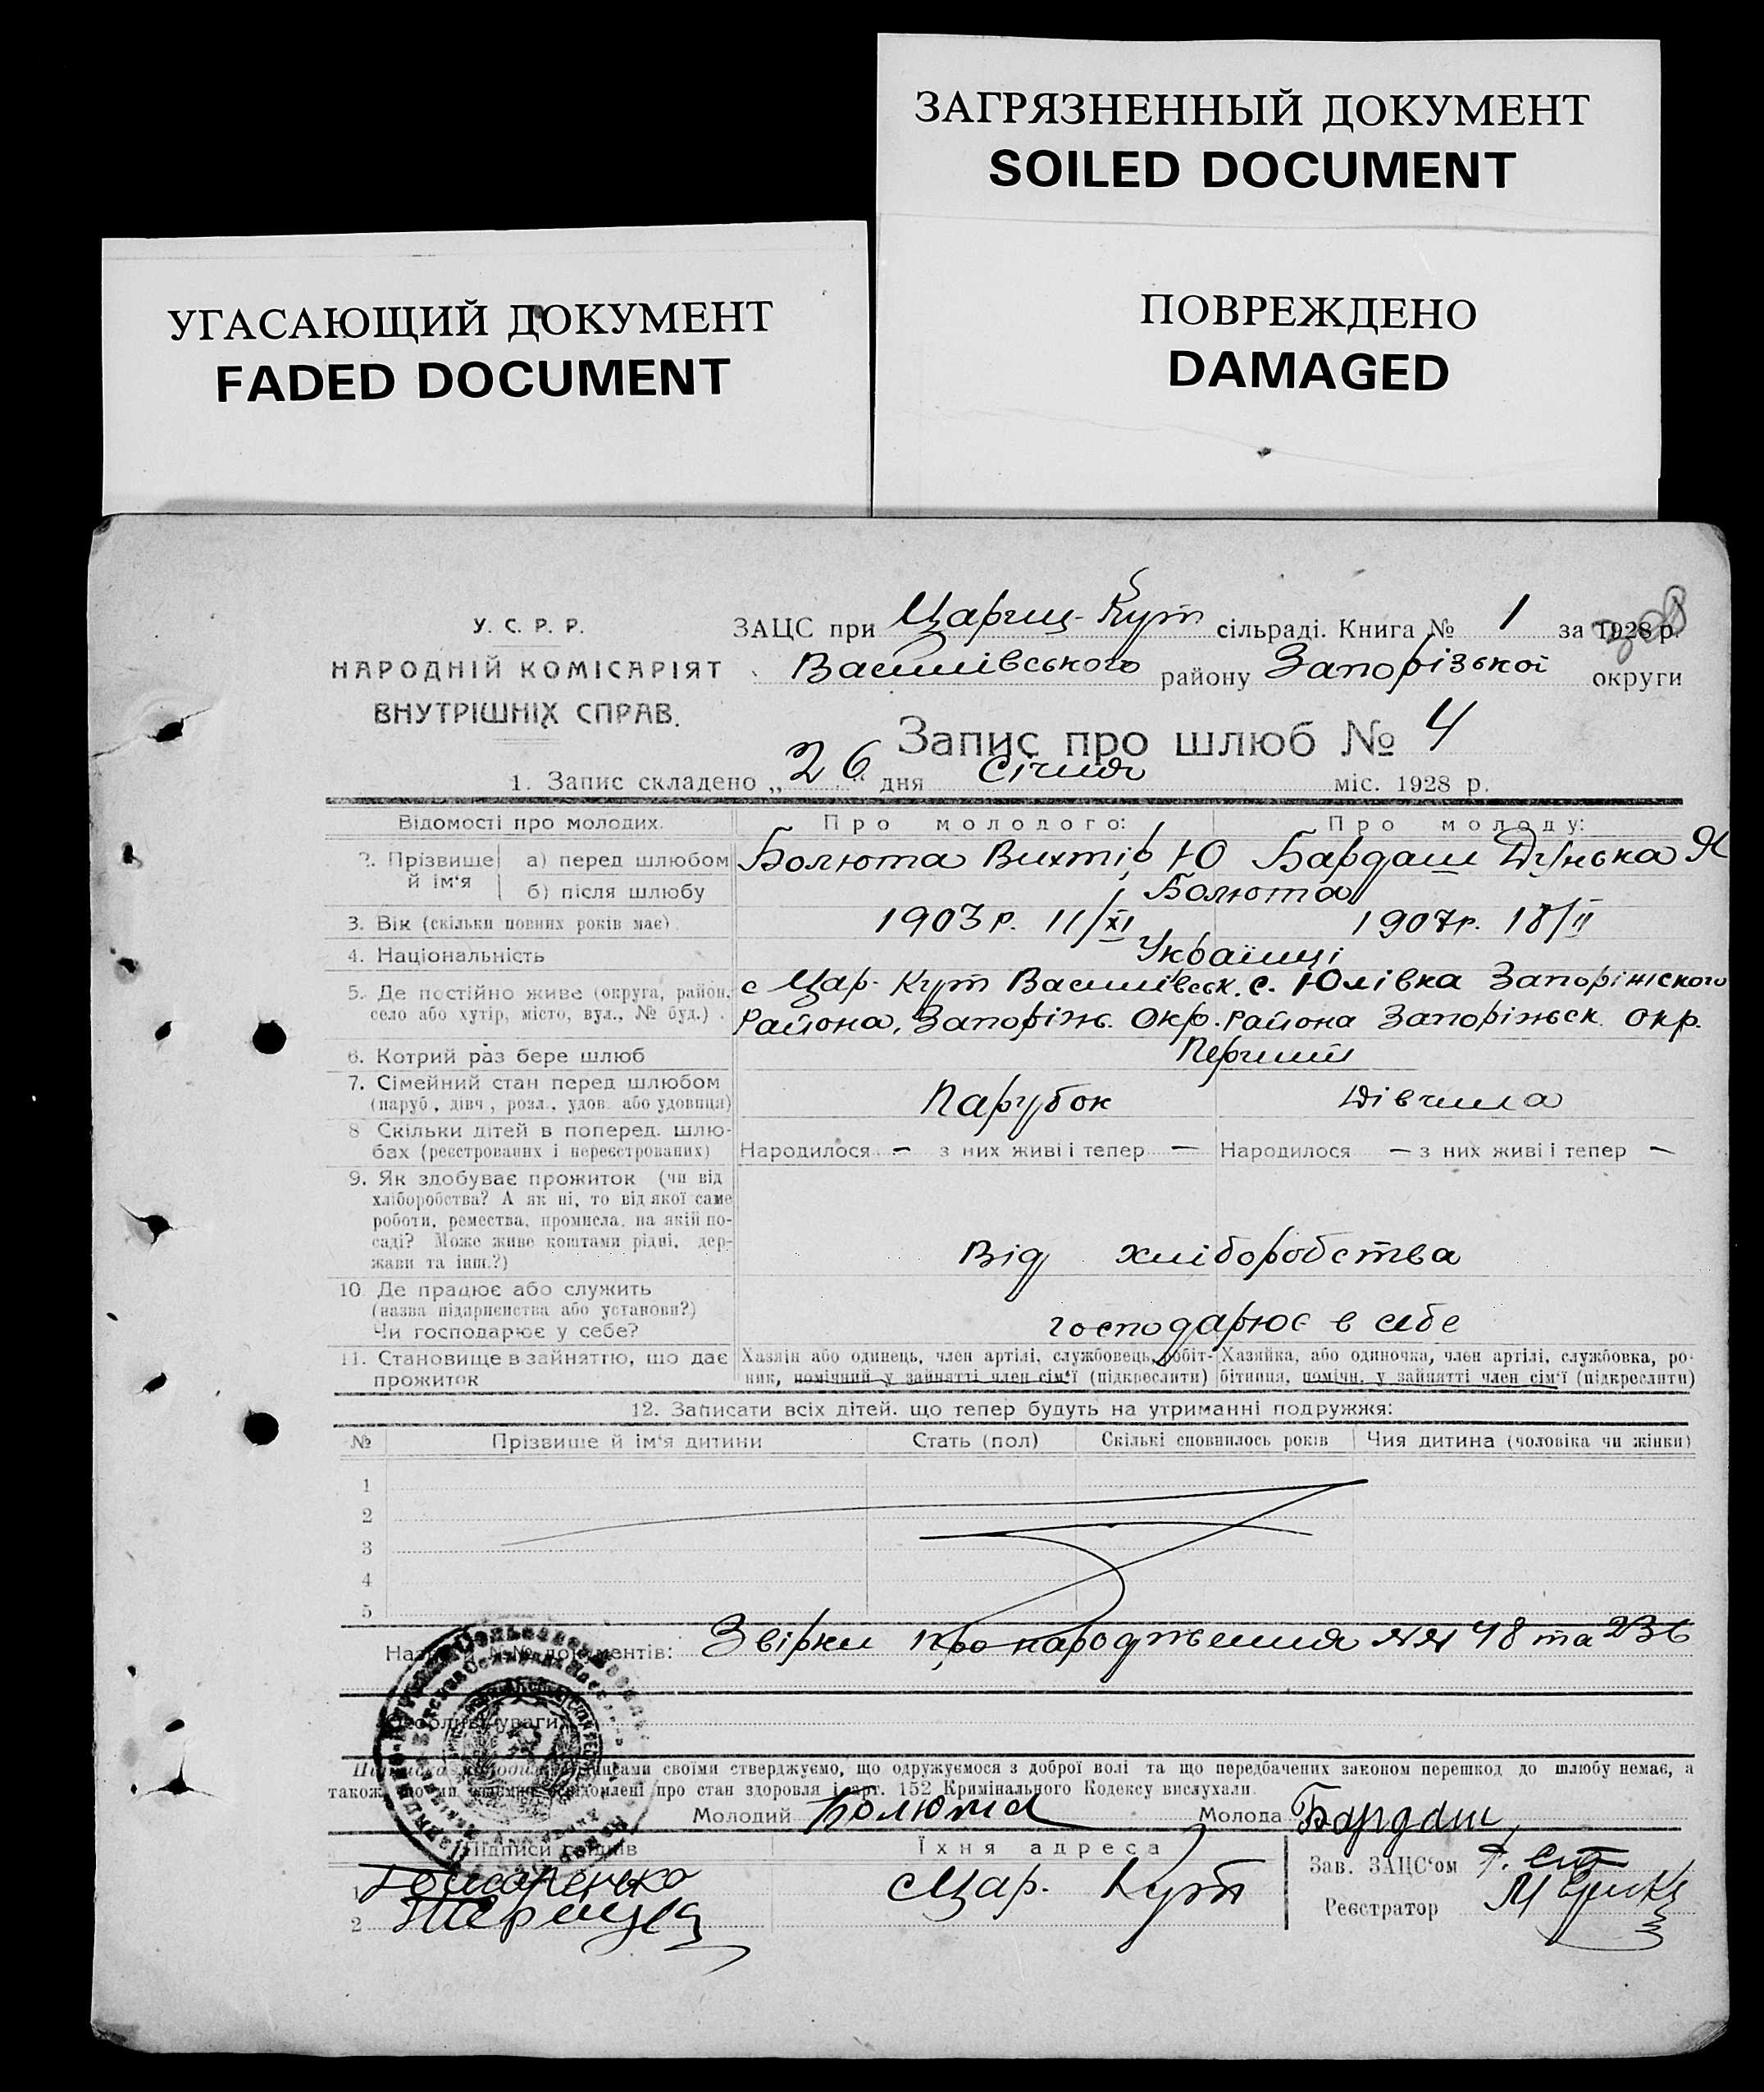 ЗАГРЯЗНЕННЫЙ ДОКУМЕНТ
SOILED DOCUMENT
УГАСАЮЩИЙ ДОКУМЕНТ
FADED DOCUMENT
ПОВРЕЖДЕНО
DAMAGED
У. С. Р. Р.
НАРОДНІЙ КОМІСАРІЯТ
ВНУТРІШНІХ СПРАВ.
ЗАЦС при Цариц-Кут сільраді. Книга № 1 за 1928 р.
Василівського району Запорізької округи
Запис про шлюб № 4
1. Запис складено „26" дня січня міс. 1928 р.
Відомості про молодих. Про молодого: Про молоду:
2. Прізвище й ім'я а) перед шлюбом Болюта Вихтір Ю Бардаш Дунька Я
б) після шлюбу Болюта
3. Вік (скільки повних років має) 1903 р. 11/XI 1907 р. 18/II
4. Національність Українці
5. Де постійно живе (округа, район, с Цар-Кут Василівськ. с. Юлівка Запоріжского
село або хутір, місто, вул., № буд.). Района, Запоріж. Окр. Района Запоріжськ. Окр.
6. Котрий раз бере шлюб Перший
7. Сімейний стан перед шлюбом
(паруб., дівч., розл., удов. або удовиця) Парубок Дівчина
8 Скільки дітей в поперед. шлю-
бах (реєстрованих і нереєстрованих) Народилося — з них живі і тепер — Народилося — з них живі і тепер —
9. Як здобуває прожиток (чи від
хліборобства? А як ні, то від якої саме
роботи, ремества, промисла, на якій по-
саді? Може живе коштами рідні, дер-
жави та інш.?) Від хліборобства
10. Де працює або служить
(назва підприємства або установи?)
Чи господарює у себе? господарює в себе
11. Становище в зайнятю, що дає Хазяїн або одинець, член артілі, службовець, робіт- Хазяйка, або одиночка, член артілі, службовка, ро-
прожиток ник, помічний у зайнятті член сім'ї (підкреслити) бітниця, помічн. у зайнятті член сім'ї (підкреслити)
12. Записати всіх дітей, що тепер будуть на утриманні подружжя:
№ Прізвище й ім'я дитини Стать (пол) Скількі сповнилось років Чия дитина (чоловіка чи жінки)
1
2
3
4
5
Назва й №№ документів: Звірки про народження №№ 48 та 236
Особливі уваги
підписами своїми стверджуємо, що одружуємося з доброї волі та що передбачених законом перешкод до шлюбу немає, а
також, що ми взаємно освідомлені про стан здоровля і арт. 152 Кримінального Кодексу вислухали.
Молодий Болюта Молода Бардаш
Підписи свідків Їхня адреса Зав. ЗАЦС'ом
1 с Цар. Кут
2 Реєстратор